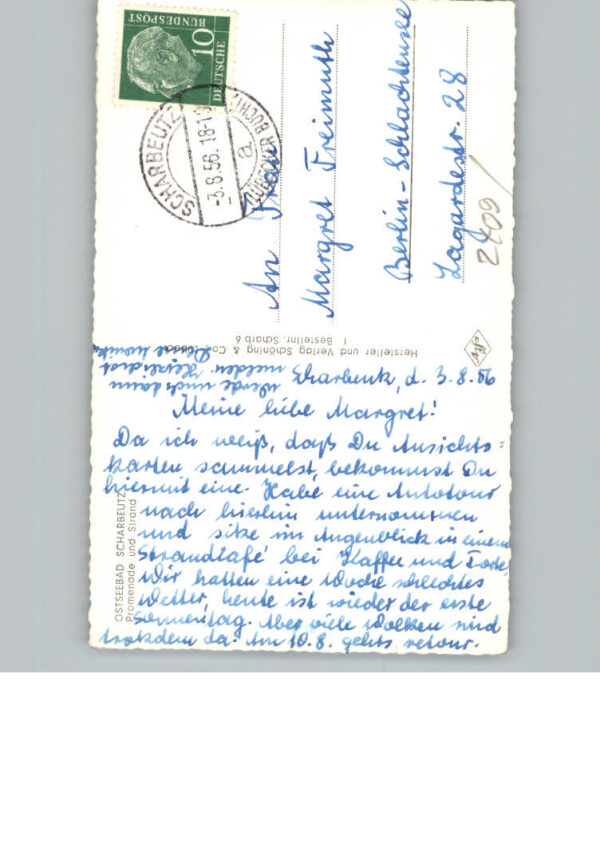 Scharbeutz, d. 3.8.56
Meine liebe Margret!
Da ich weiß, daß Du Ansichts=
karten sammelst, bekommst Du
hiermit eine. Habe eine Autotour
nach hierhin unternommen
und sitze im Augenblick in einem
Strandcafé bei Kaffee und Torte.
Wir hatten eine Woche schlechtes
Wetter, heute ist wieder der erste
Sonnentag. Aber viele Wolken sind
trotzdem da. Am 10.8. gehts retour.
Werde mich dann
melden. Herzlichst
Deine
OSTSEEBAD SCHARBEUTZ
Promenade und Strand
Hersteller und Verlag Schöning & Co., Lübeck
Bestellnr. Scharb 6
Agfa
10
DEUTSCHE
BUNDESPOST
SCHARBEUTZ
-3.8.56.18-1
a
LÜBECKER BUCHT
An Frau
Margret Freimuth
Berlin-Schlachtensee
Lagardestr. 28
2409/